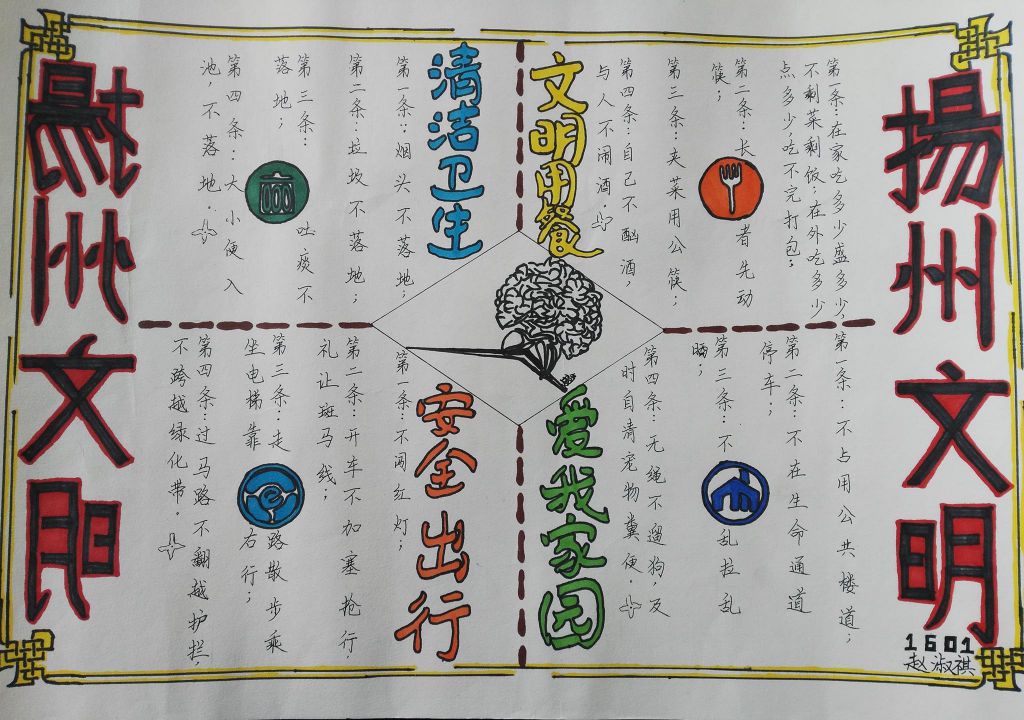 揚州文明
1601
赵淑祺
文明用餐
第一条:在家吃多少盛多少,
不剩菜剩饭;在外吃多少
点多少,吃不完打包;
第二条:长者先动
筷;
第三条:夹菜用公筷;
第四条:自己不酗酒,
与人不闹酒。
清洁卫生
第一条:烟头不落地;
第二条:垃圾不落地;
第三条:吐痰不
落地;
第四条:大小便入
池,不落地。
爱我家园
第一条:不占用公共楼道;
第二条:不在生命通道
停车;
第三条:不乱拉乱
晒;
第四条:无绳不遛狗,及
时自清宠物粪便。
安全出行
第一条:不闯红灯;
第二条:开车不加塞抢行,
礼让斑马线;
第三条:走路散步乘
坐电梯靠右行;
第四条:过马路不翻越护栏,
不跨越绿化带。
揚州文明